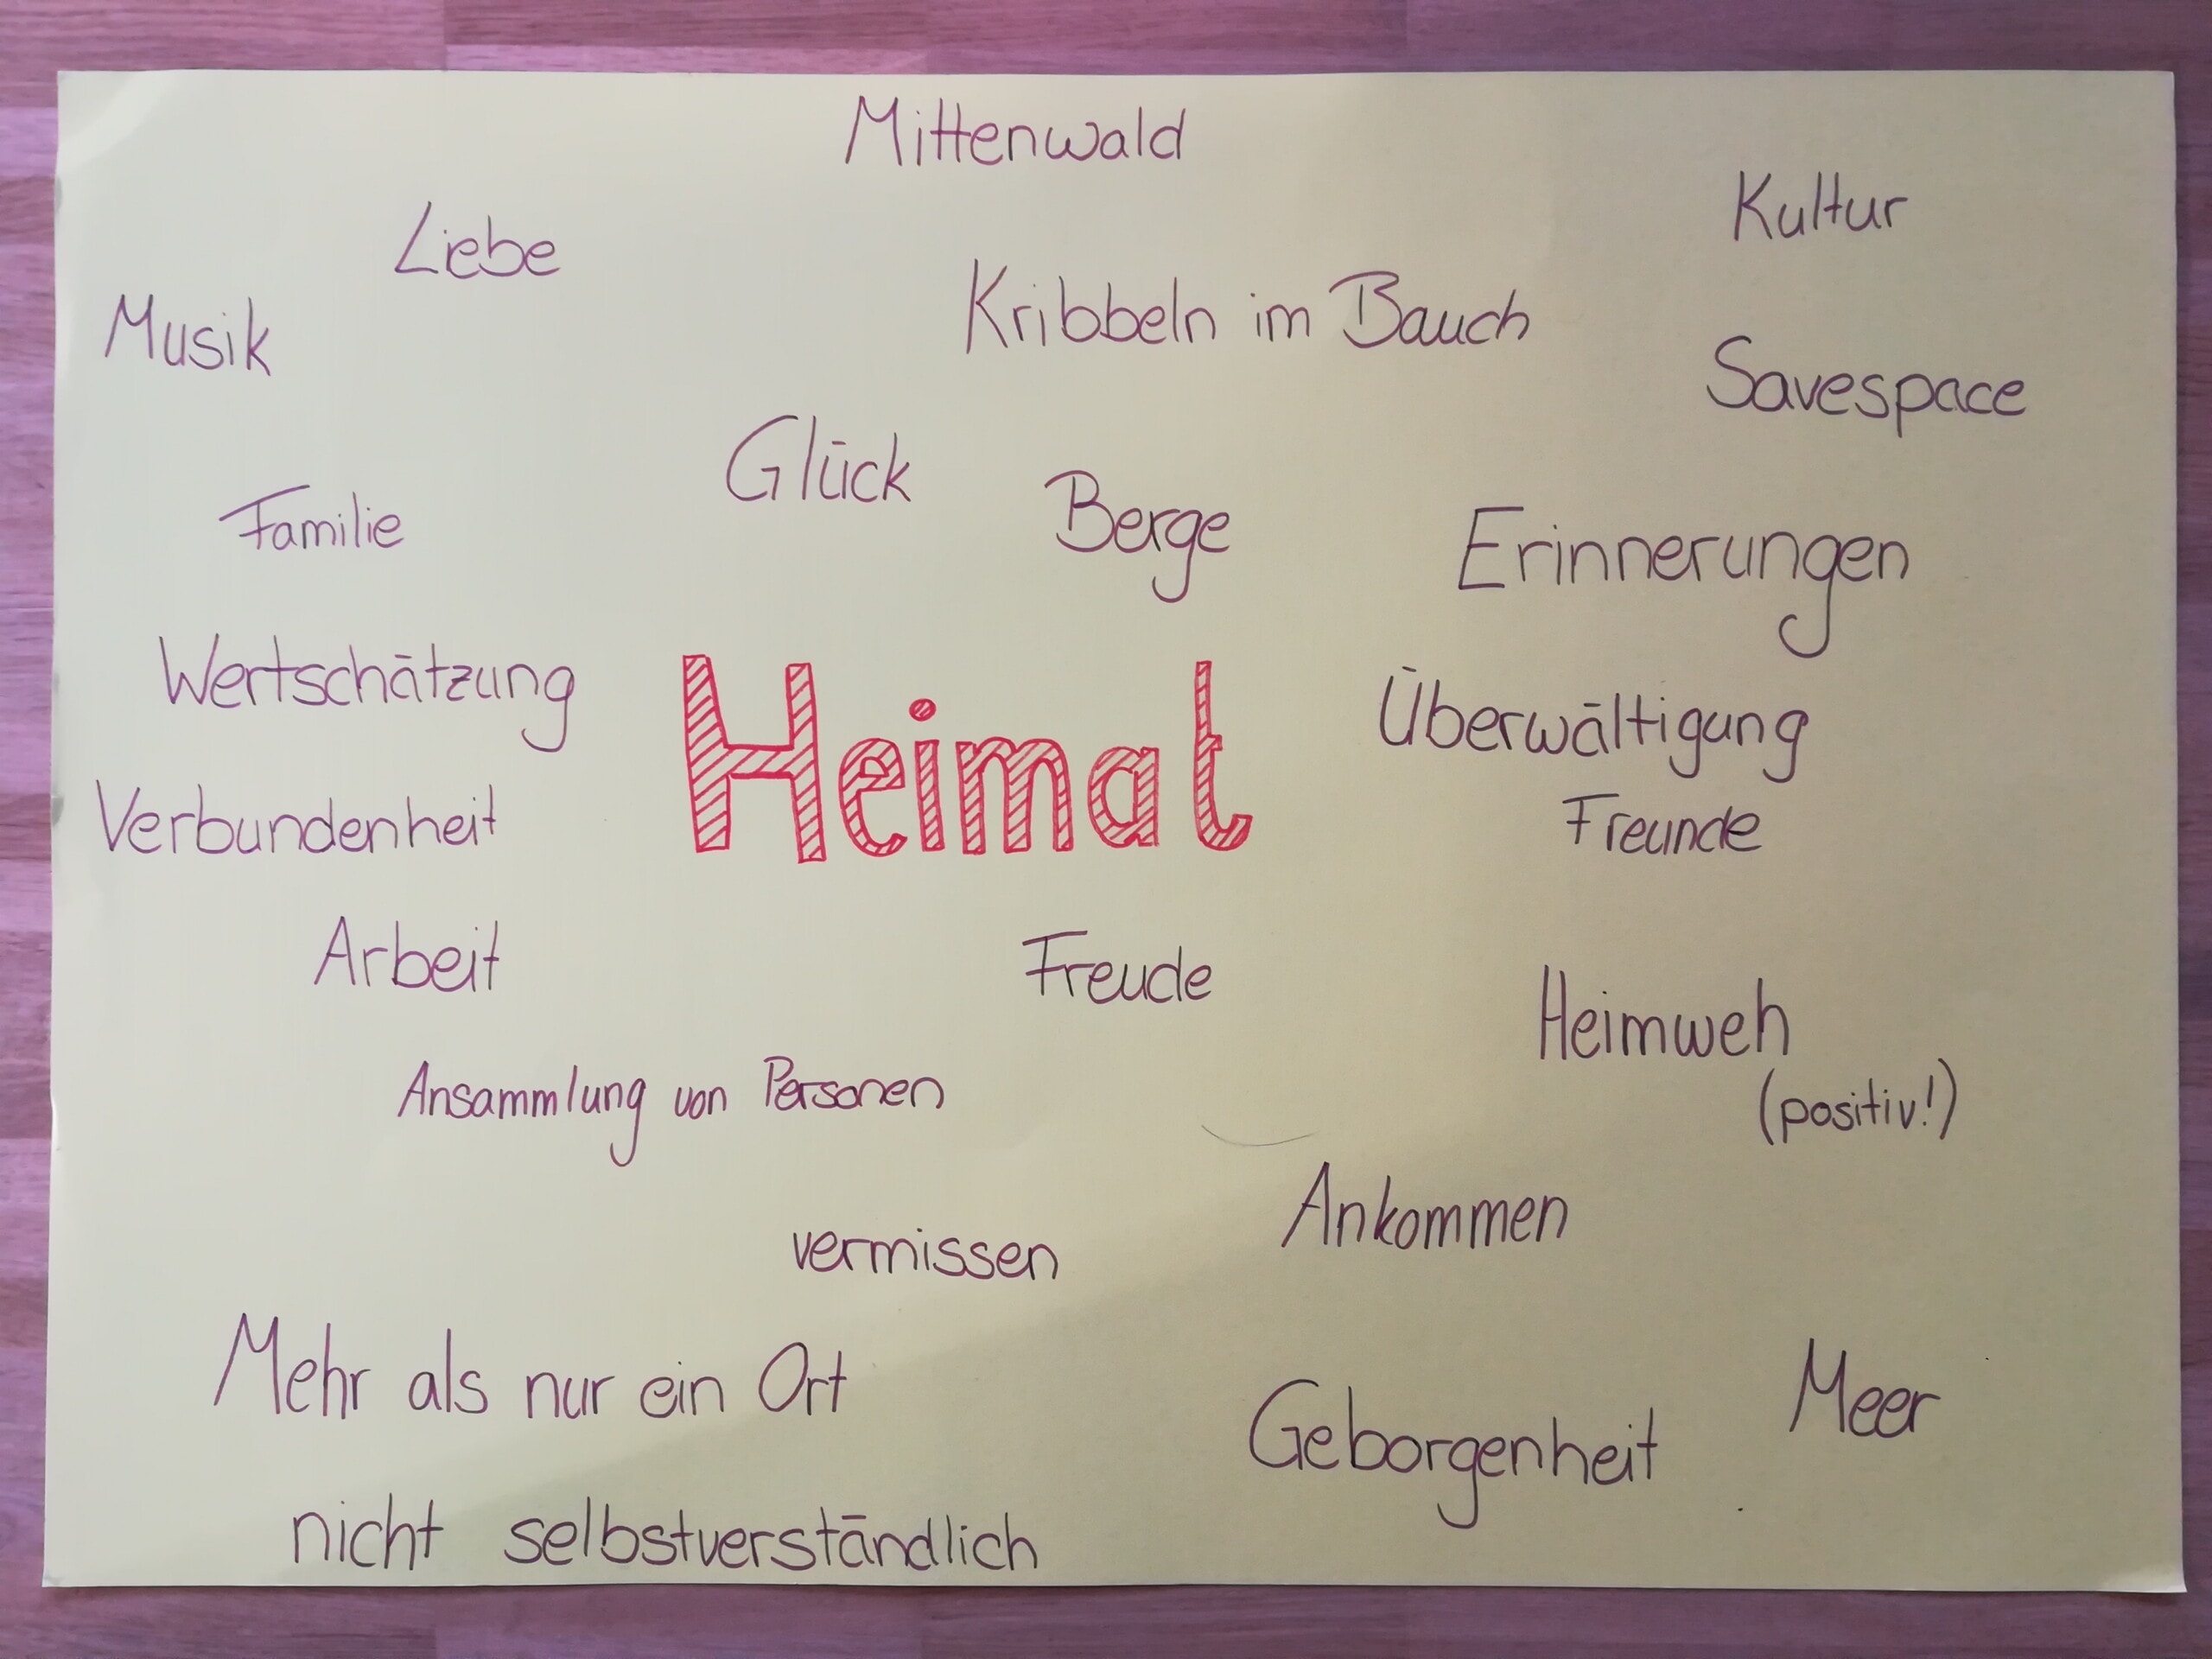 Mittenwald
Kultur
Liebe
Kribbeln im Bauch
Musik
Savespace
Glück
Berge
Familie
Erinnerungen
Wertschätzung
Heimat
Überwältigung
Verbundenheit
Freunde
Arbeit
Freude
Heimweh
(positiv!)
Ansammlung von Personen
Ankommen
vermissen
Mehr als nur ein Ort
Meer
Geborgenheit
nicht selbstverständlich